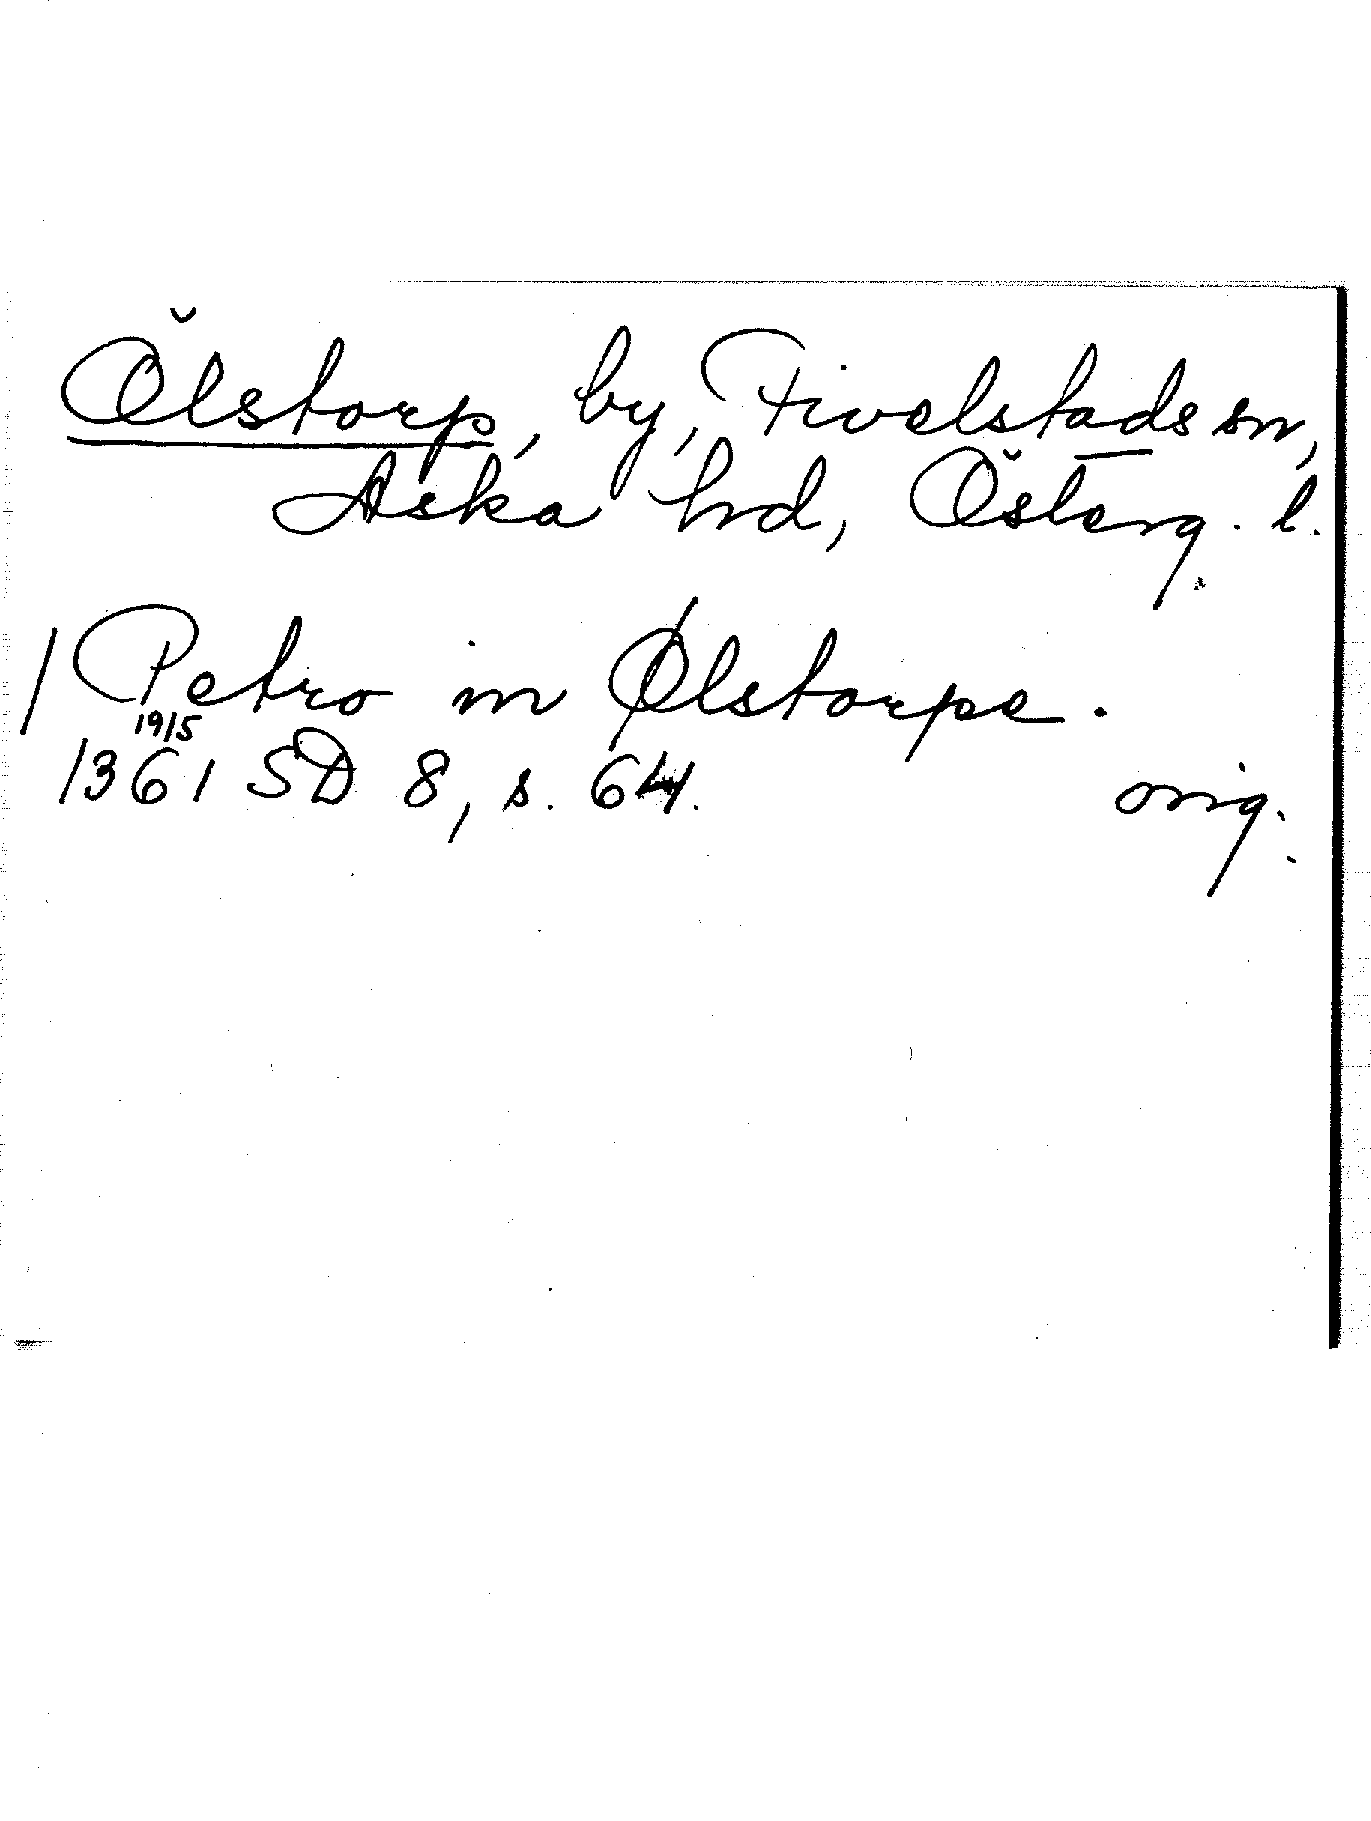 Ölstorp, by, Fivelstads sn,
Aska hd, Österg. l.
/ Petro in Ølstorpe.
19/5
1361 SD 8, s. 64. orig.